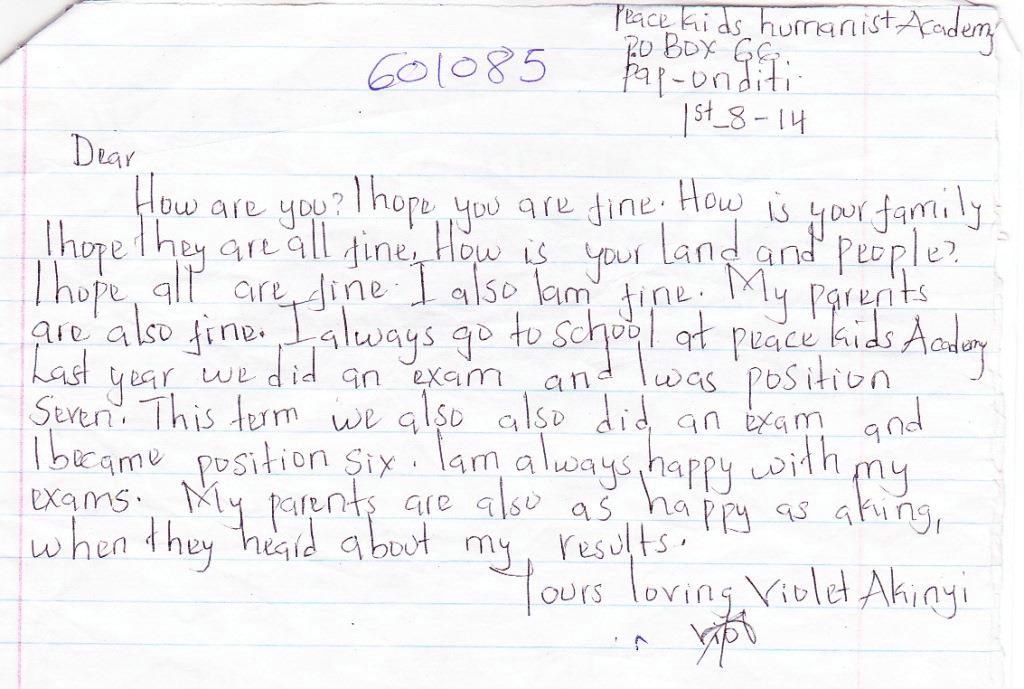 Peace kids humanist Academy
P.O BOX GG
Pap-onditi
601085
1st-8-14
Dear
How are you? I hope you are fine. How is your family
I hope they are all fine. How is your land and people?
I hope all are fine. I also Iam fine. My parents
are also fine. I always go to school at peace kids Academy
Last year we did an exam and I was position
Seven. This term we also also did an exam and
I became position six. Iam always happy with my
exams. My parents are also as happy as aking,
when they heard about my results.
Yours loving Violet Akinyi